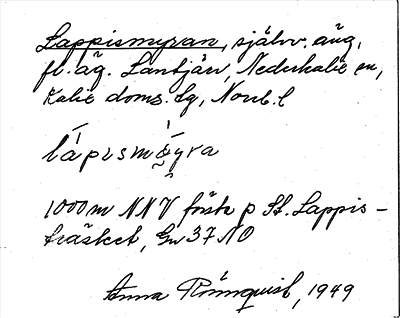 Lappismyran, självv. äng,
fl. äg. Lantjärv, Nederkalix sn,
Kalix doms. lg, Norrb. l
lápismýra
1000 m NNV från St. Lappis-
träsket, Gw 37 NO
Anna Rönnquist, 1949